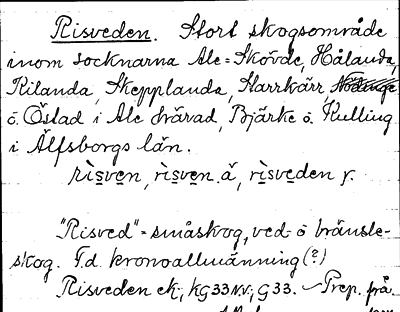 Risveden. Stort skogsområde
inom socknarna Ale=Skövde, Hålanda,
Kilanda, Skepplanda, Starrkärr, Nödinge
o. Östad i Ale härad, Bjärke o. Kulling
i Älfsborgs län.
rìsven, rìsven. å, rìsveden r.
"Risved" = småskog, ved- o bränsle-
skog. F.d. kronoallmänning (?)
Risveden ek., KG33NV, G33. Prep. frå.